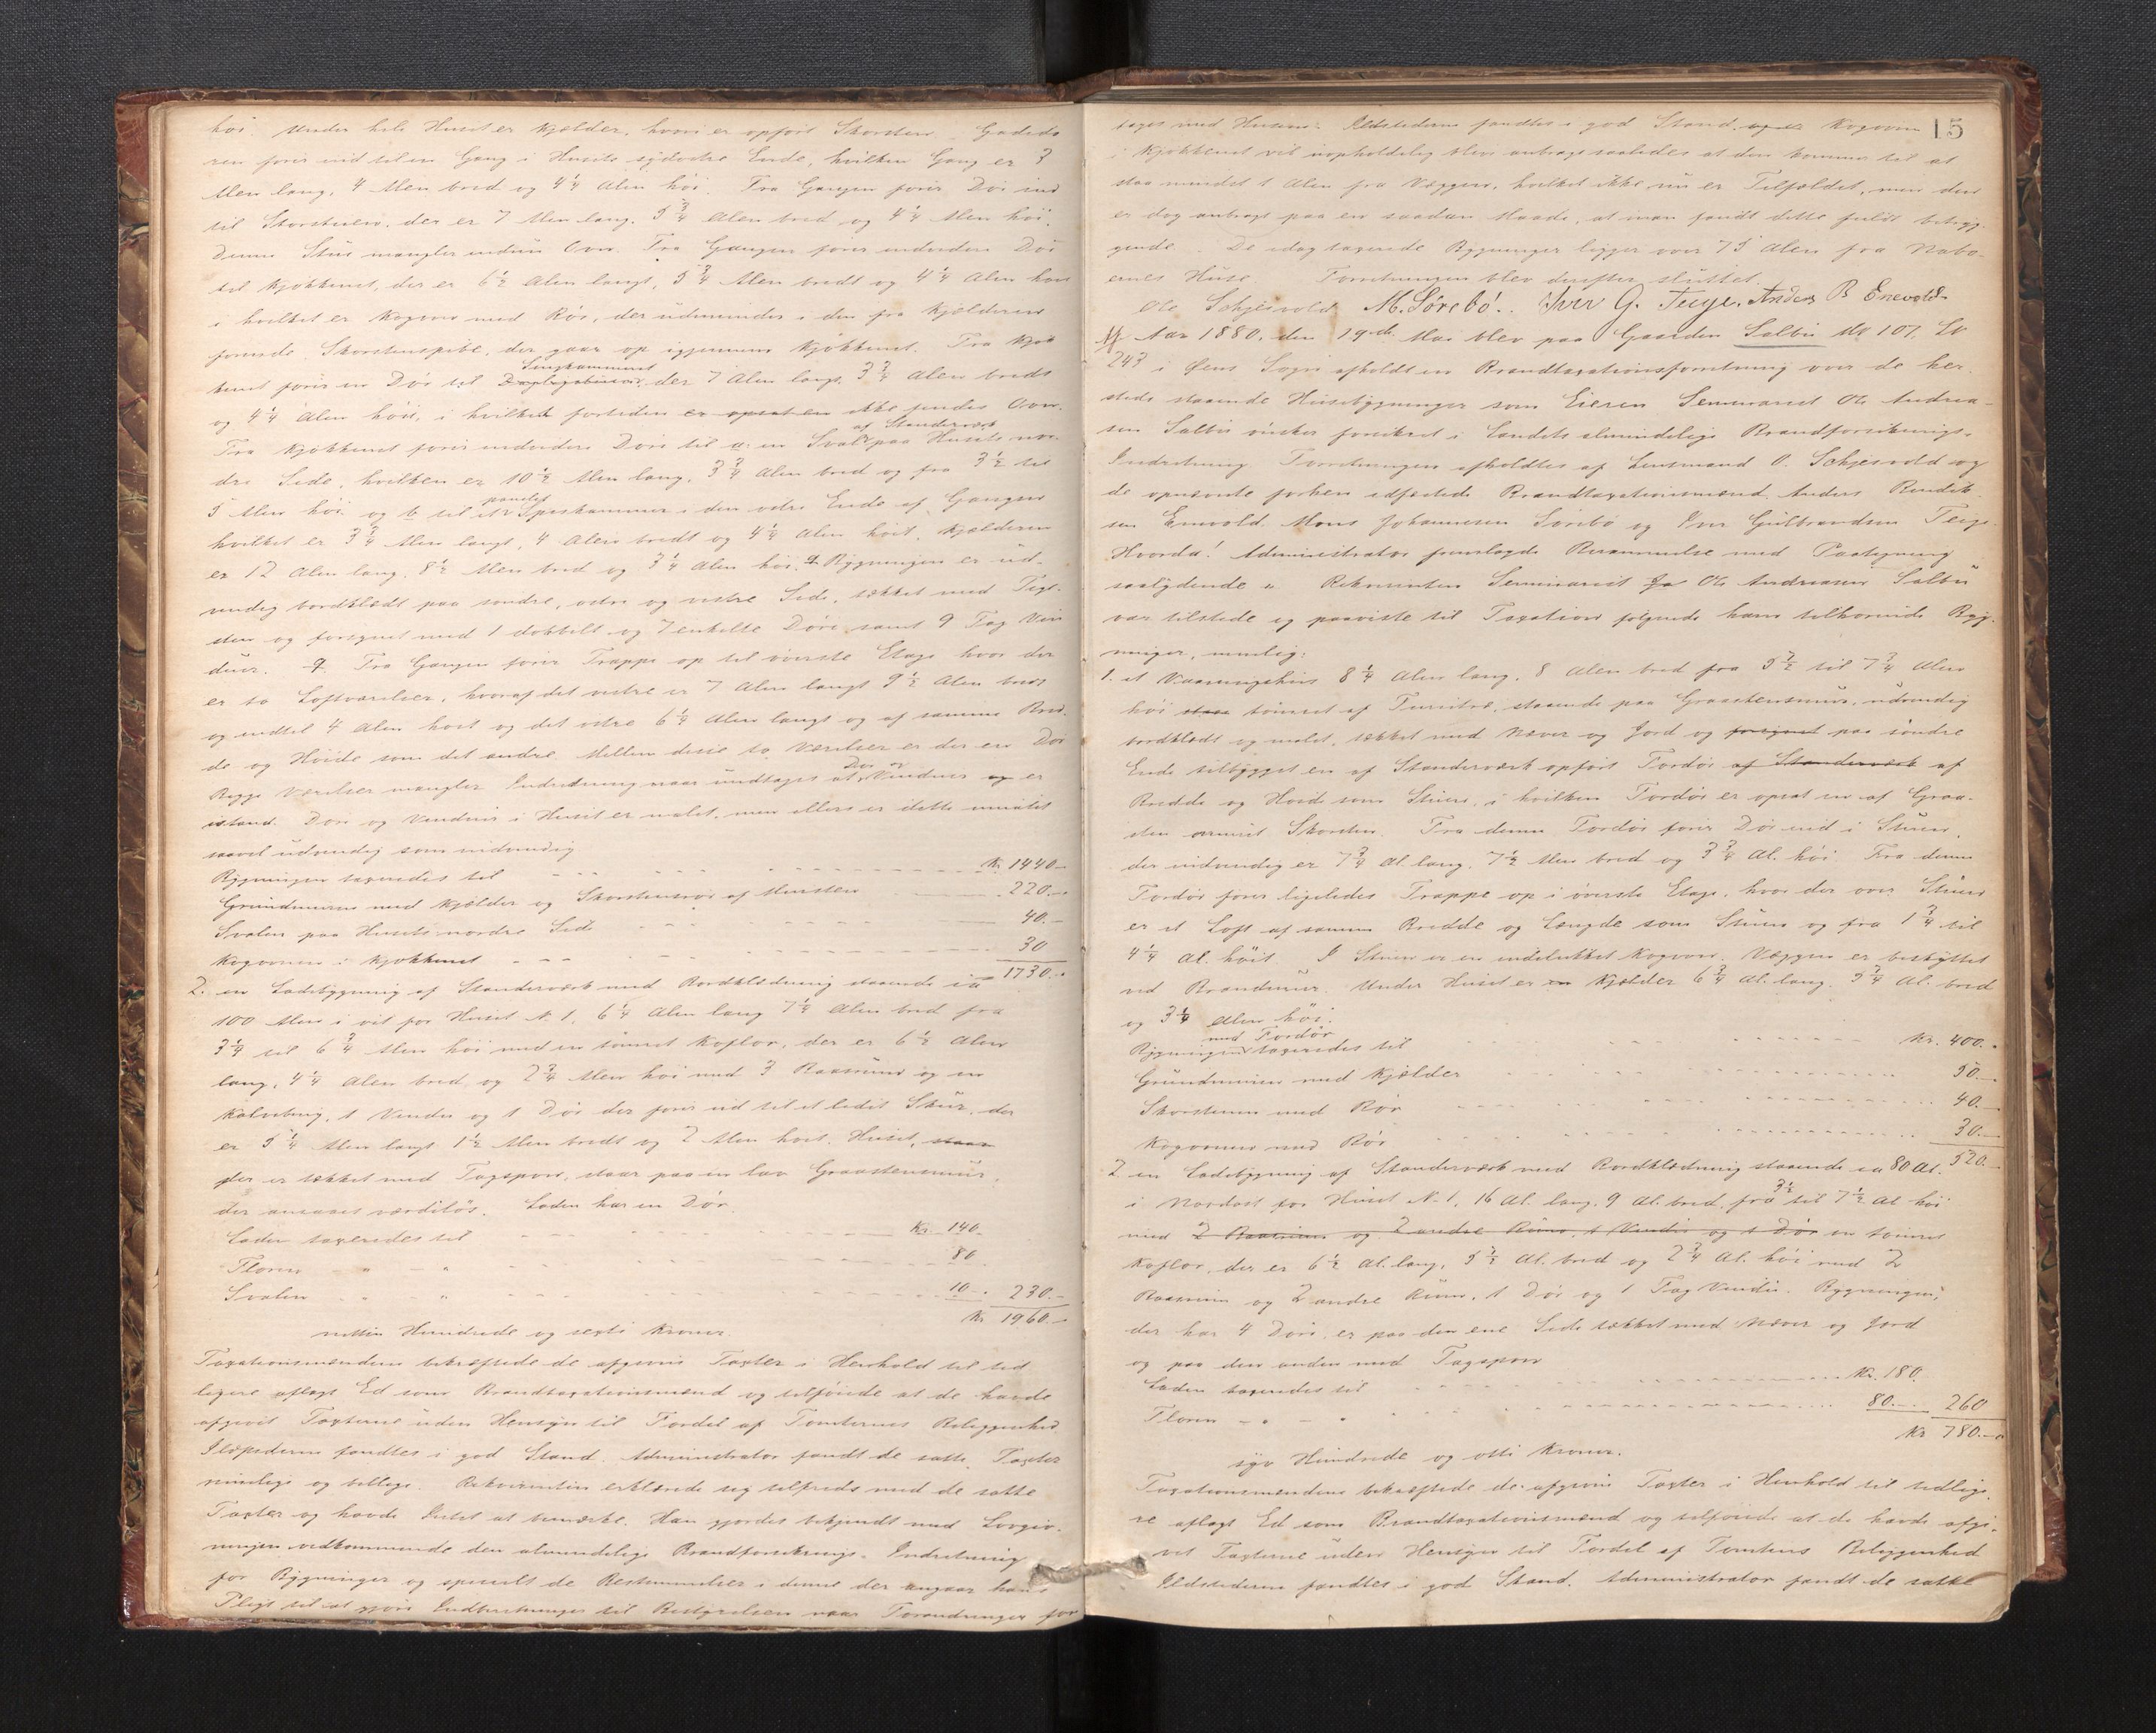 höi. Under hele Huset er Kjælder, hvori er opført Skorsten. Gadedö-
ren förer ind til en Gang i Husets sydöstre Ende, hvilken Gang er 3
Alen lang, 4 Alen bred og 4 1/4 Alen höi. Fra Gangen förer Dör ind
til Storstuen, der er 7 Alen lang, 5 3/4 Alen bred og 4 1/4 Alen höi.
Denne Stue mangler endnu Ovn. Fra Gangen förer endvidere Dör
til Kjökkenet, der er 6 1/2 Alen langt, 5 3/4 Alen bredt og 4 1/4 Alen höit
i hvilket er Kogeovn med Rör, der udmunder i den fra Kjælderen
förende Skorstenspibe, der gaar op igjennem Kjökkenet. Fra Kjök-
kenet förer en Dör til Sengkammeret der 7 Alen langt, 3 3/4 Alen bredt
og 4 1/4 Alen höit, i hvilket fortiden er opsat en ikke findes Ovn.
Fra Kjökkenet förer endvidere Döre til a. en Sval af Standerværk paa Husets nor-
dre Side, hvilken er 10 1/2 Alen lang, 3 3/4 Alen bred og fra 3 1/2 til
5 Alen höi og b til et panelet Spiskammer i den östre Ende af Gangen
hvilket er 3 3/4 Alen langt, 4 Alen bredt og 4 1/4 Alen höit. Kjælderen
er 12 Alen lang, 8 1/2 Alen bred og 3 1/4 Alen höi. Bygningen er ud-
vendig bordklædt paa söndre, östre og vestre Side, tækket med Tegl-
sten og forsynet med 1 dobbelt og 7 enkelte Döre samt 9 Fag Vin-
duer. Fra Gangen förer Trappe op til överste Etage hvor der
er to Loftværelser, hvoraf det vestre er 7 Alen langt 9 1/2 Alen bredt
og indtil 4 Alen höit og det östre 6 1/4 Alen langt og af samme Bred-
de og Höide som det andre. Mellem disse to Værelser er der en Dör
Begge Værelser mangler Indredning naar undtages at Dör og Vinduer og er
istand. Döre og Vinduer i Huset er malet, men ellers er dette umalet
saavel udvendig som indvendig
Bygningen taxeredes til Kr. 1440 –
Grundmuren med Kjælder og Skorstensrör af Mursten 220. –
Svalen paa Husets nordre Side 40. –
Kogeovnen i Kjökkenet 30
1730. –
2. en Ladebygning af Standerværk med Bordklædning staaende ca
100 Alen i vest for Huset N. 1, 6 1/4 Alen lang 7 1/4 Alen bred fra
3 1/4 til 6 3/4 Alen höi med en tömret Koflor, der er 6 1/2 Alen
lang, 4 1/4 Alen bred, og 2 3/4 Alen höi med 3 Baasrum og en
Kalvebing, 1 Vindu og 1 Dör der förer ud til et lidet Skur, der
er 5 1/4 Alen langt 1 1/2 Alen bredt og 2 Alen höit. Huset, staar
der er tækket med Tagspon, staar paa en lav Graastensmur,
der ansaaes værdilös. Laden har en Dör.
Laden taxeredes til Kr. 140.
Floren " " 80
Svalen " " 10 – 230. –
Kr 1960. –
nitten Hundrede og sexti Kroner.
Taxationsmændene bekræftede de afgivne Taxter i Henhold til tid
ligere aflagt Ed som Brandtaxationsmænd og tilföiede at de havde
afgivet Taxterne uden Hensyn til Fordel af Tomternes Beliggenhed.
Ildstederne fandtes i god Stand. Administrator fandt de satte Taxter
rimelige og billige. Rekvirenten erklærede sig tilfreds med de satte
Taxter og havde Intet at bemærke. Han gjordes bekjendt med Lovgiv-
ningen vedkommende den almindelige Brandforsikrings-Indretning
for Bygninger og specielt de Bestemmelser i denne der angaar hans
Pligt til at gjöre Indberetninger til Bestyrelsen naar Forandringer for
15
tages med Husene. Ildstederne fandtes i god Stand. Kogeovnen
i Kjökkenet vil uopholdelig blive anbragt saaledes at den kommer til at
staa mindst 1 Alen fra Væggen, hvilket ikke nu er Tilfældet, men den
er dog anbragt paa en saadan Maade, at man fandt dette fuldt betryg-
gende. De idag taxerede Bygninger ligger over 75 Alen fra Nabo-
ernes Huse. Forretningen blev derefter sluttet.
Ole Schjesvold M. Sörebö. Iver G. Teige. Anders B Enevold
Aar 1880, den 19de Mai blev paa Gaarden Salbu M No 107, L No
243 i Öens Sogn afholdt en Brandtaxationsforretning over de her-
steds staaende Husebygninger som Eieren Seminarist Ole Andrea-
sen Salbu önsker forsikret i Landets almindelige Brandforsikrings-
Indretning. Forretningen afholdtes af Lensmand O. Schjesvold og
de opnævnte forhen edfæstede Brandtaxationsmænd Anders Bendik-
sen Enevold, Mons Johannesen Sörebö og Iver Gulbrandsen Teige.
Hvorda! Administrator fremlagde Berammelse med Paategning
saalydende " Rekvirenten Seminarist Ole Andreasen Salbu
var tilstede og paaviste til Taxation fölgende ham tilhörende Byg-
ninger, nemlig:
1. et Vaaningshus 8 1/4 Alen lang, 8 Alen bred fra 5 1/2 til 7 3/4 Alen
höi tömret af Furutræ, staaende paa Graastensmur, udvendig
bordklædt og malet, tækket med Næver og Jord og forsynet paa söndre
Ende tilbygget en af Standerværk opfört Fordör af Standerværk af
Bredde og Höide som Stuen, i hvilken Fordör er opsat en af Graa-
sten muret Skorsten. Fra denne Fordör förer Dör ind i Stuen,
der indvendig er 7 3/4 Al. lang, 7 1/2 Alen bred og 3 3/4 Al. höi. Fra denne
Fordör förer ligeledes Trappe op i överste Etage, hvor der over Stuen
er et Loft af samme Bredde og Længde som Stuen og fra 1 3/4 til
4 1/4 Al. höit. I Stuen er en indelukket Kogeovn. Væggen er beskyttet
ved Brandmur. Under Huset er en Kjælder 6 3/4 Al. lang, 5 3/4 Al. bred
og 3 1/4 Alen höi.
Bygningen med Fordör taxeredes til Kr. 400. –
Grundmuren med Kjælder 50. –
Skorstenen med Rör 40. –
Kogeovnen med Rör 30. –
520. –
2 en Ladebygning af Standerværk med Bordklædning staaende ca 80 Al.
i Nordost for Huset N. 1, 16 Al. lang, 9 Al. bred, fra 3 1/2 til 7 1/2 Al höi
med 2 Baasrum og 2 andre Rum, 1 Vindu og 1 Dör en tömret
Koflor, der er 6 1/2 Al. lang, 5 1/2 Al. bred og 2 3/4 Al. höi med 2
Baasrum og 2 andre Rum, 1 Dör og 1 Fag Vindu. Bygningen,
der har 4 Döre, er paa den ene Side tækket med Næver og Jord
og paa den anden med Tagspon
Laden taxeredes til Kr. 180.
Floren " " 80. – 260
Kr 780. –
syv Hundrede og otti Kroner.
Taxationsmændene bekræftede de afgivne Taxter i Henhold til tidlige-
re aflagt Ed som Brandtaxationsmænd og tilföiede at de havde afgi-
vet Taxterne uden Hensyn til Fordel af Tomtens Beliggenhed
Ildstederne fandtes i god Stand. Administrator fandt de satte